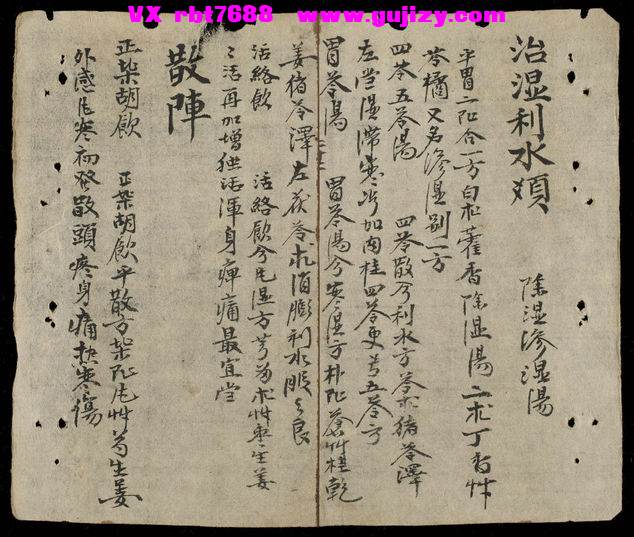 VX rbt7688 www.gujizy.com
治湿利水類 除湿滲湿湯
平胃二陈合一方白朮藿香除湿湯二朮丁香艸
苓橘又名滲湿别一方
四苓五苓湯 四苓散兮利水方苓朮猪苓澤
左当湿滞寒兮加肉桂四苓更号五苓方
胃苓湯 胃苓湯兮寒湿方朴陈蒼艸桂乾
姜猪苓澤左茯苓朮消膨利水服之良
活絡飲 活絡飲兮风湿方芎歸朮艸枣生姜
羌活再加增独活渾身痺痛最宜当
散陣
正柴胡飲 正柴胡飲平散方柴陈风艸芍生姜
外感风寒初發散頭疼身痛热寒傷